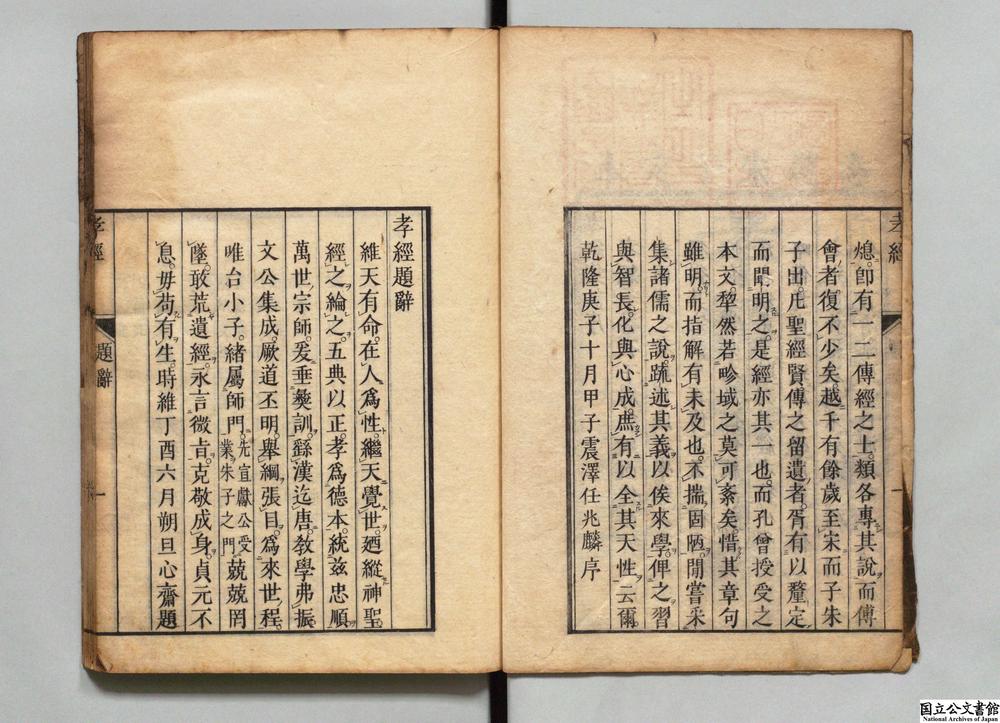 熄。卽有一二傳經之士。類各專其說。而傅
會者復不少矣。越千有餘歲。至宋而子朱
子出。凡聖經賢傳之留遺者。胥有以釐定。
而闡明之。是經亦其一也。而孔曾授受之
本文。犂然若畛域之莫可紊矣。惜其章句
雖明。而指解有未及也。不揣固陋。閒嘗采
集諸儒之說。疏述其義。以俟來學。俾之習
與智長。化與心成。庶有以全其天性云爾
乾隆庚子十月甲子震澤任兆麟序
孝經
一
孝經題辭
維天有命。在人爲性。繼天覺世。廼縱神聖
經之綸之。五典以正。孝爲德本。統茲忠順
萬世宗師。爰垂彝訓。繇漢迄唐。敎學弗振
文公集成。厥道丕明。舉綱張目。爲來世程。
唯台小子。緒屬師門。先宣獻公受業朱子之門。兢兢罔
墜。敢荒遺經。永言微旨。克敬成身。貞元不
息。毋苟有生。時維丁酉六月朔旦心齋題
孝經
題辭
一
国立公文書館
National Archives of Japan